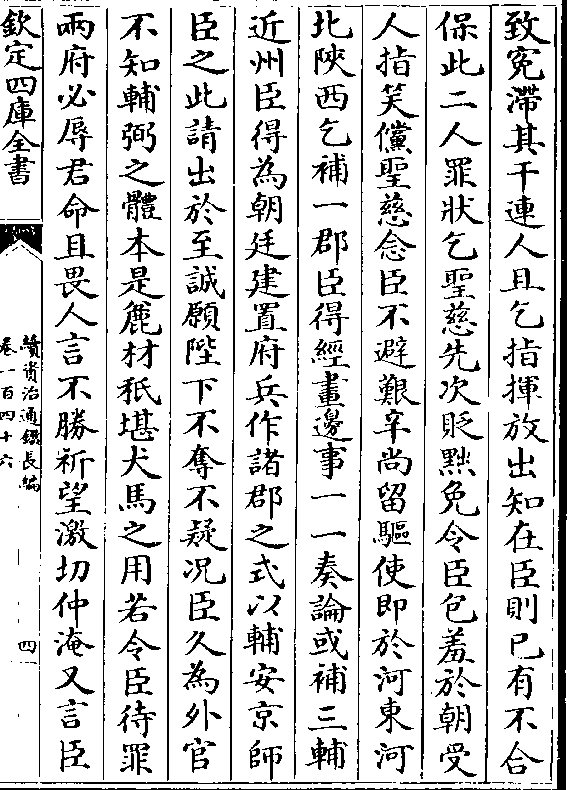 致寃滯其干連人且乞指揮放出知在臣則已有不合
保此二人罪狀乞聖慈先次貶黜免令臣包羞於朝受
人指笑儻聖慈念臣不避艱辛尚留驅使即於河東河
北陜西乞補一郡臣得經畫邊事一一奏論或補三輔
近州臣得為朝廷建置府兵作諸郡之式以輔安京師
臣之此請出於至誠願陛下不奪不疑况臣久為外官
不知輔弼之體本是麄材秖堪犬馬之用若令臣待罪
兩府必辱君命且畏人言不勝祈望激切仲淹又言臣
欽定四庫全書
續資治通鑑長編
卷一百四十六
四